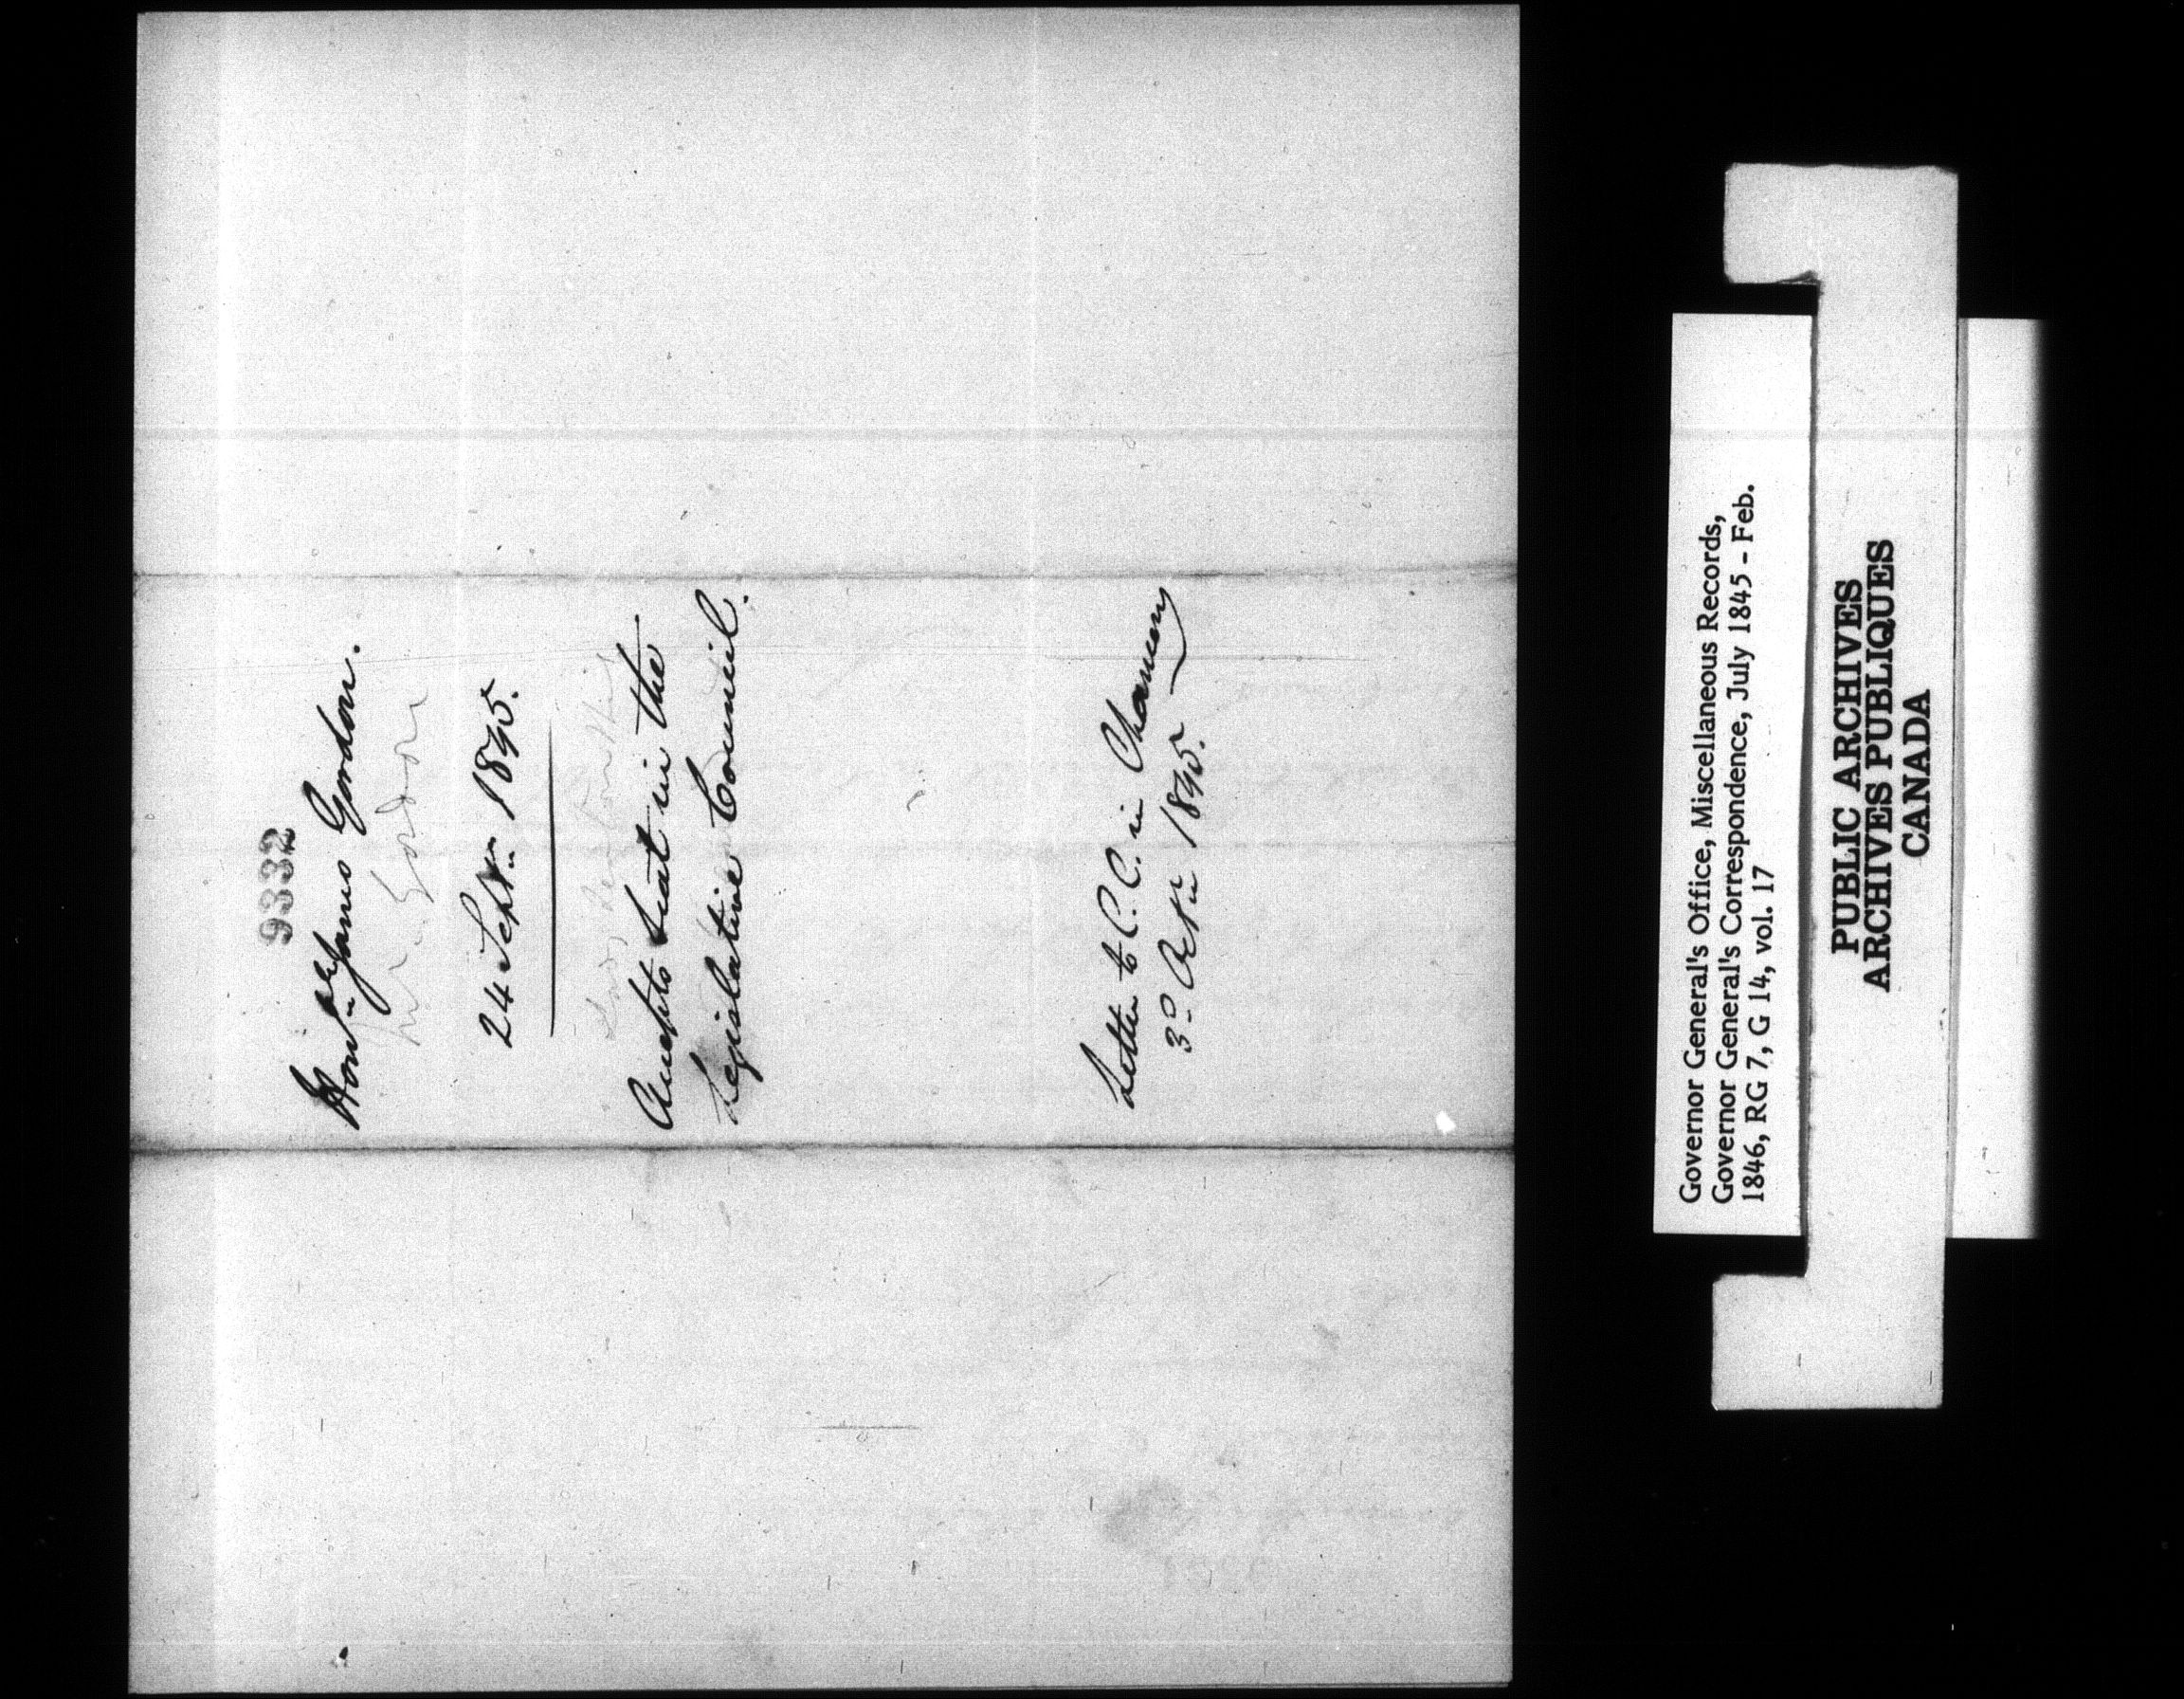 9332
Honble James Gordon.
Mr. Gordon
24 Septr. 1845.
Accepts seat in the
Legislative Council.
Letter to C. C. in Chancery
3d Octr 1845.
Governor General's Office, Miscellaneous Records,
Governor General's Correspondence, July 1845 - Feb.
1846, RG 7, G 14, vol. 17
PUBLIC ARCHIVES
ARCHIVES PUBLIQUES
CANADA